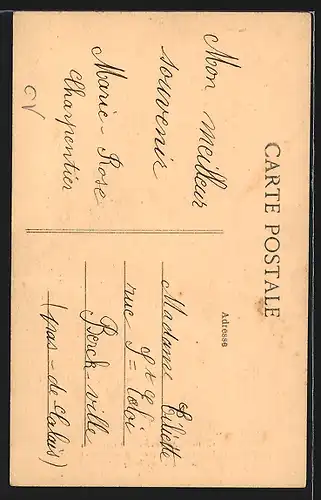 CARTE POSTALE
Mon meilleur
souvenir
Marie-Rose
Charpentier
Adresse
Madame
rue St=
Berck-ville
(pas-de-Calais)